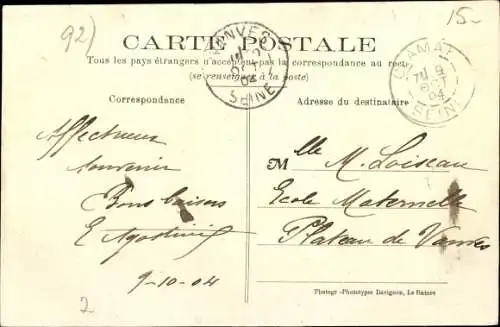 92)
15-
CARTE POSTALE
Tous les pays étrangers n'acceptent pas la correspondance au recto
(se renseigner à la poste)
VANVES
SEINE
CLAMART
SEINE
Correspondance
Adresse du destinataire
Affectueux
souvenir
Bons baisers
E Agostini
9-10-04
2
Mlle M. Loiseau
Ecole Maternelle
Plateau de Vanves
Photogr.-Phototypie Bavignon, Le Raincy